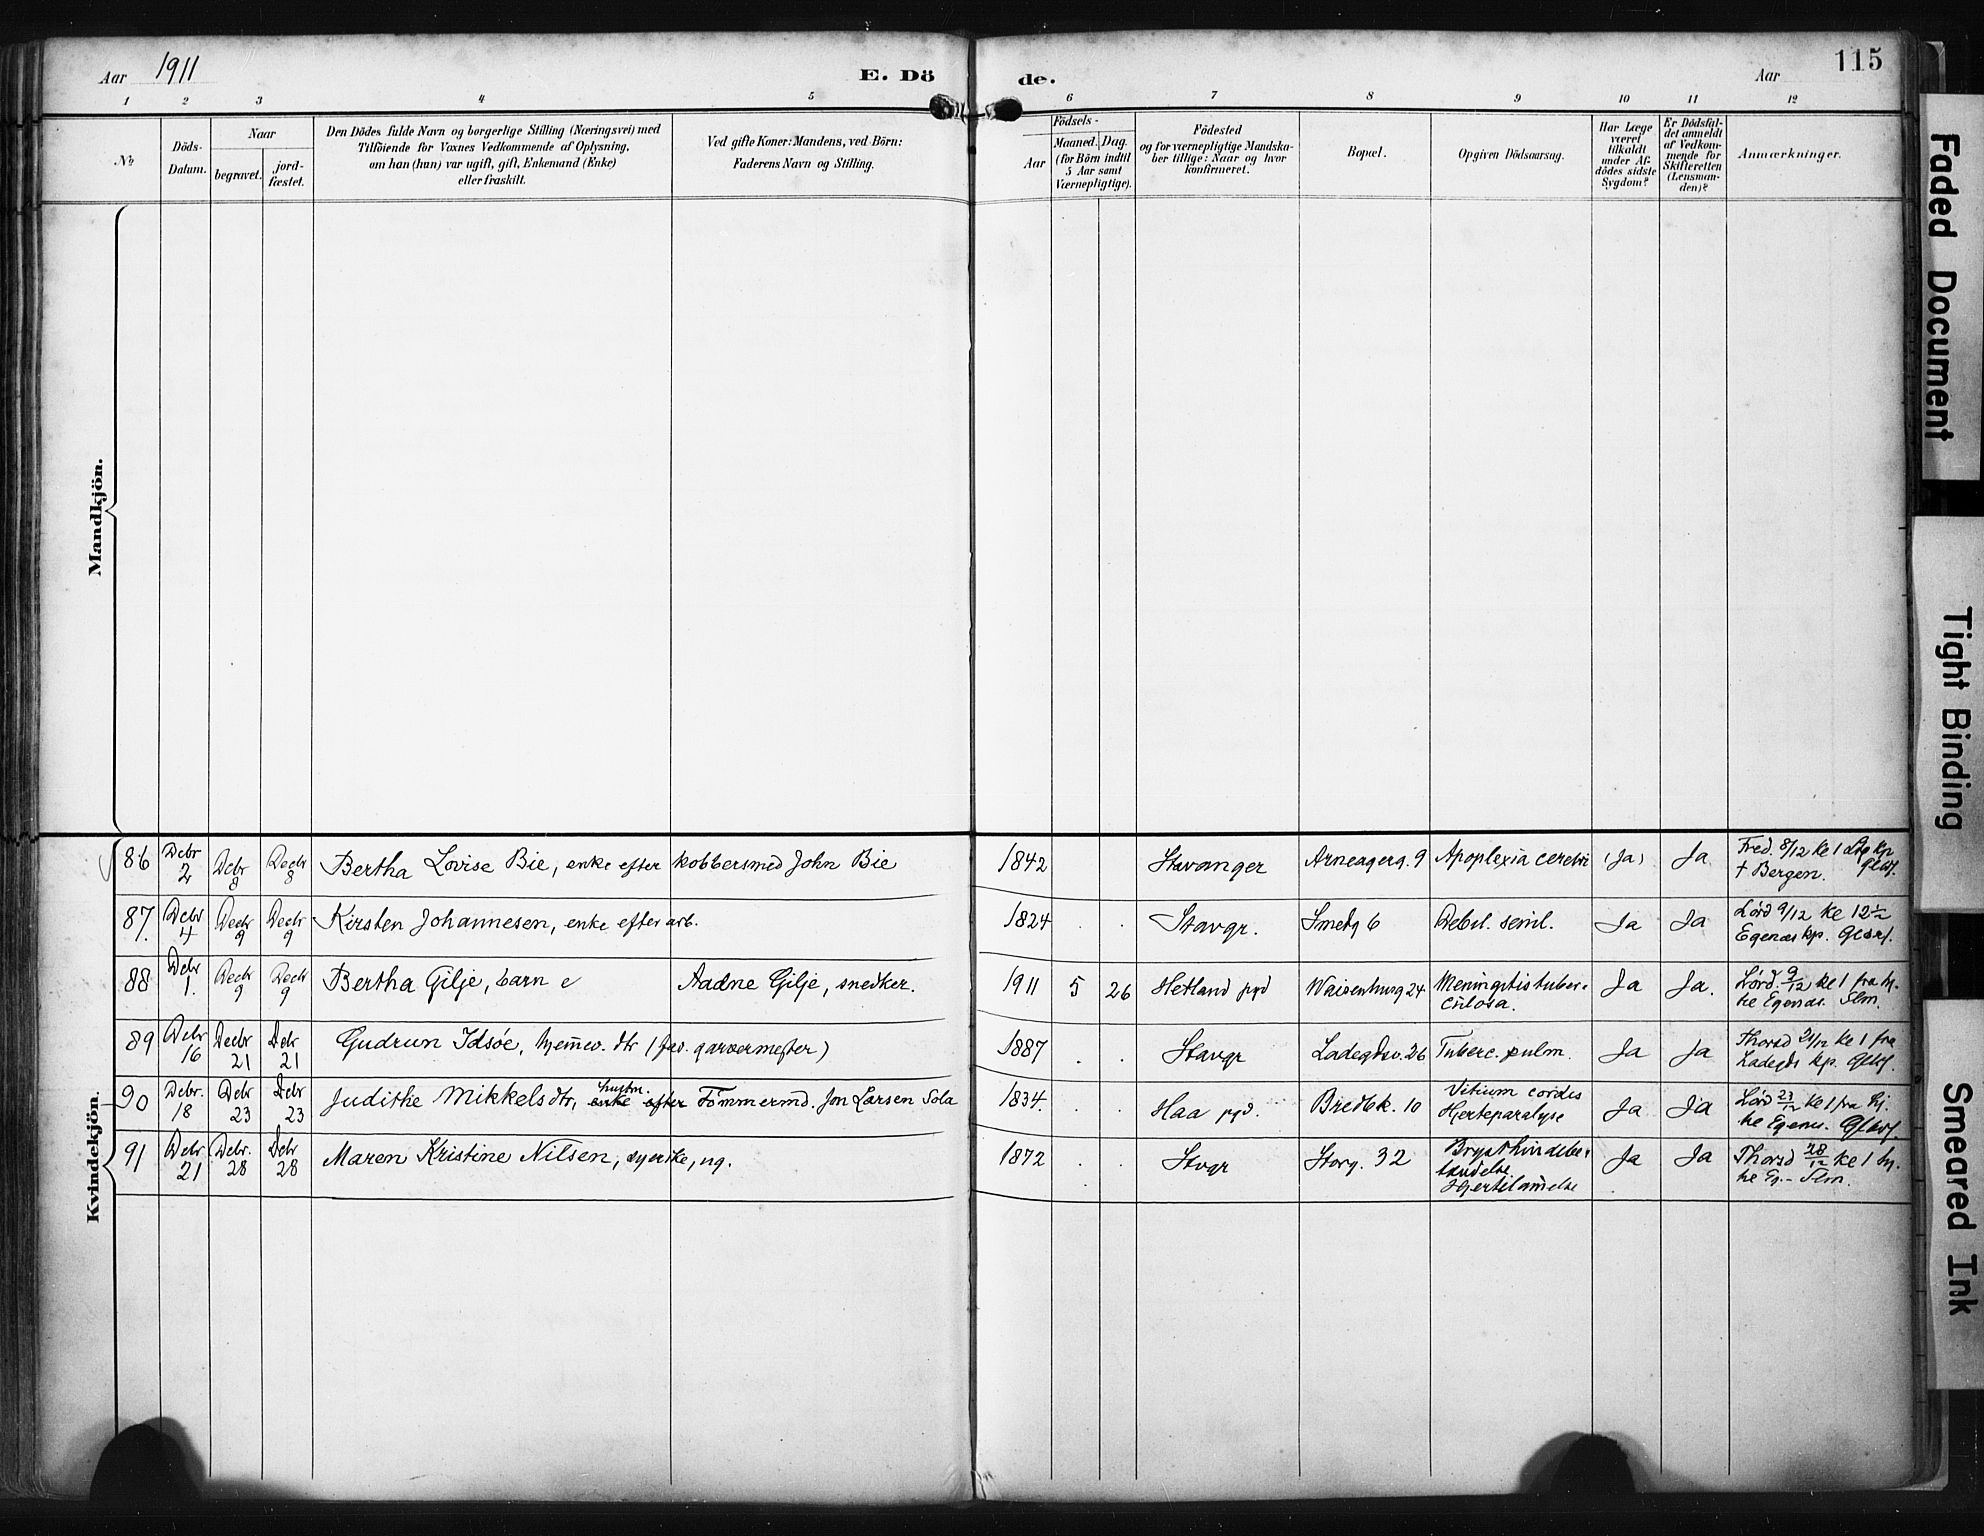 Aar 1911
E. Dö
de.
Aar
115
1 2 3 4 5 6 7 8 9 10 11 12
№
Döds-
Datum.
Naar
begravet.
jord-
fæstet.
Den Dödes fulde Navn og borgerlige Stilling (Næringsvei) med
Tilföiende for Voxnes Vedkommende af Oplysning,
om han (hun) var ugift, gift, Enkemand (Enke)
eller fraskilt.
Ved gifte Koner: Mandens, ved Börn:
Faderens Navn og Stilling.
Födsels-
Aar
Maaned. Dag.
(for Börn indtil
5 Aar samt
Værnepligtige).
Födested
og for værnepligtige Mandska-
ber tillige: Naar og hvor
konfirmeret.
Bopæl.
Opgiven Dödsaarsag.
Har Læge
været
tilkaldt
under Af-
dödes sidste
Sygdom?
Er Dödsfal-
det anmeldt
af Vedkom-
mende for
Skifteretten
(Lensman-
den)?
Anmærkninger.
Mandkjön.
Kvindekjön.
86 Debr 2 Debr 8 Decbr 8 Bertha Lovise Bie, enke efter kobbersmed John Bie 1842 Stavanger Arneagerg. 9 Apoplexia cerebri (Ja) Ja Fred. 8/12 ke 1
† Bergen.
87. Debr 4 Decbr 9 Decbr 9 Kirsten Johannesen, enke efter arb. 1824 Stavgr. Smedg 6 Debil. senil. Ja Ja Lörd 9/12 ke 12½
Egenæs kp.
88 Debr 1. Decbr 9 Decbr 9 Bertha Gilje, barn e Aadne Gilje, snedker. 1911 5 26 Hetland pgd Waisenhusg 24 Meningitis tuber-
culosa. Ja Ja. Lörd. 9/12 ke 1 fra hj.
ke Egenæs.
89 Debr 16 Decbr 21 Debr 21 Gudrun Idsóe, hjemmev. dtr (fav. garvermester) 1887 Stavgr Ladegdsv. 26 Tuberc. pulm. Ja Ja Thorsd 21/12 ke 1 fra
Ladegds kp.
90 Debr. 18 Debr 23 Debr 23 Judithe Mikkelsdtr, hustru. enke efter Tömmermd. Jon Larsen Sola 1834. Haa pgd. Bredbk. 10 Vitium cordis
Hjerteparalyse Ja Ja Lörd 23/12 ke 1 fra hj.
ke Egenæs.
91 Debr 21 Debr. 28 Debr 28 Maren Kristine Nilsen, syerske, ug. 1872 Stvgr Storg. 32 Brysthindebe-
tændelse
Hjertelamelse Ja Ja Thorsd 28/12 ke 1 hj.
ke Eg.-
Faded Document
Tight Binding
Smeared Ink